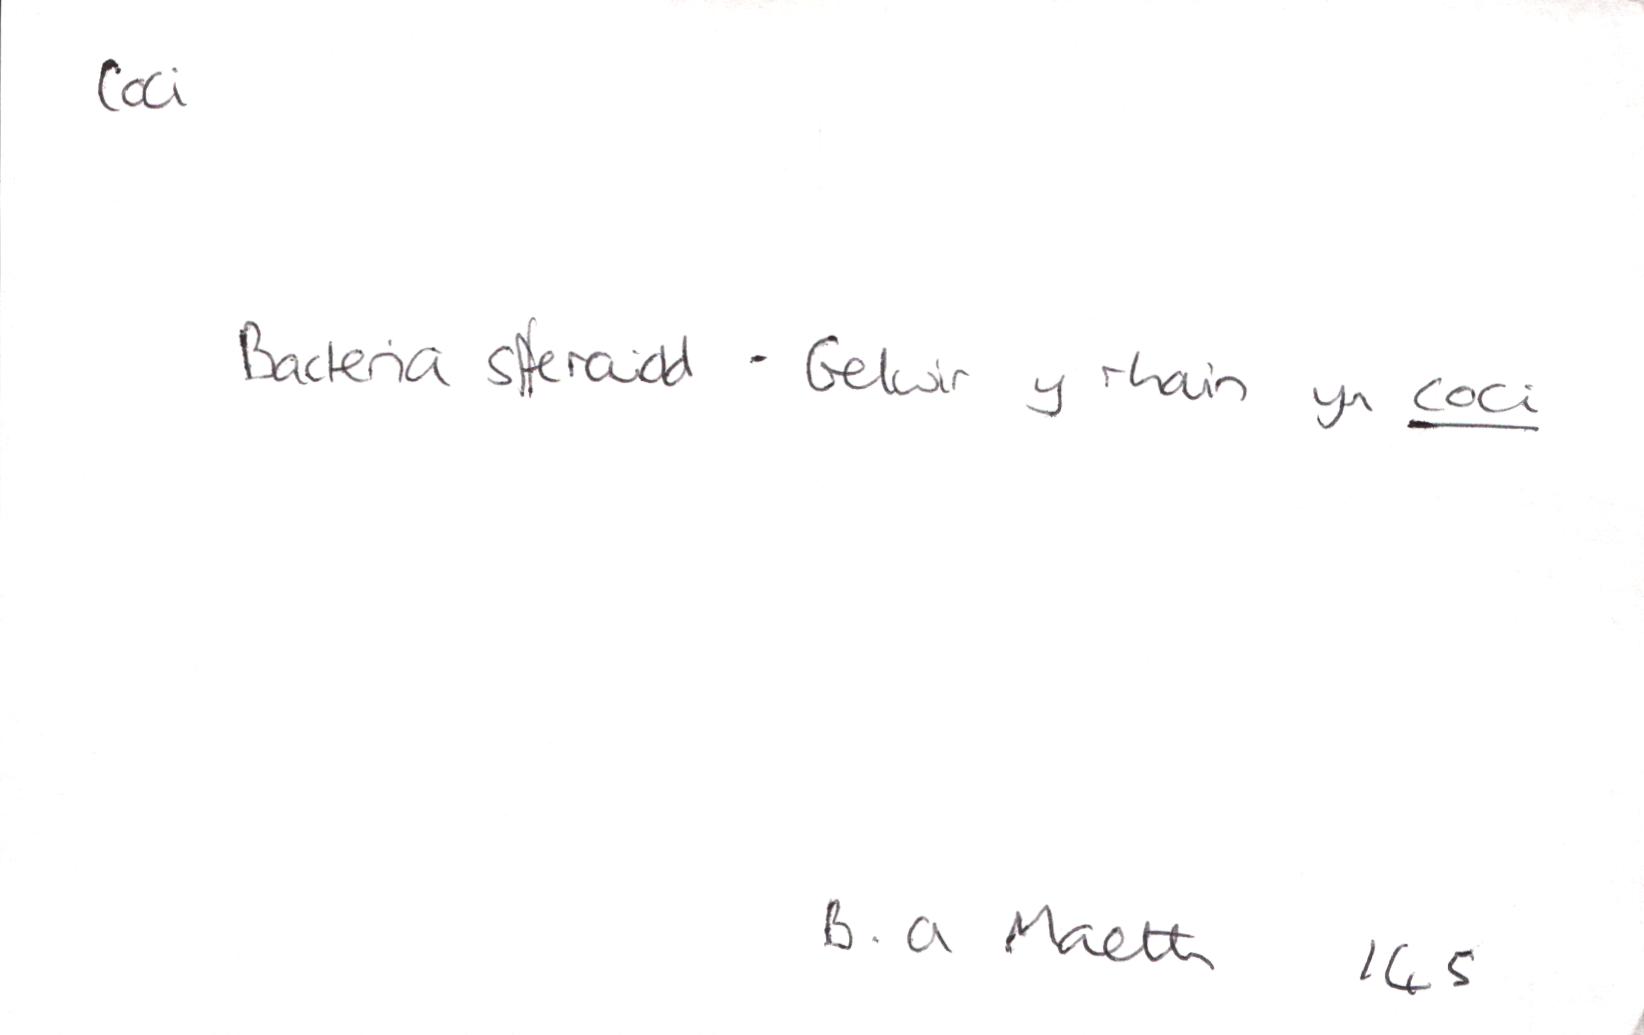 Coci
Bacteria sfferaidd - Gelwir y rhain yn coci
B. a Maeth 145